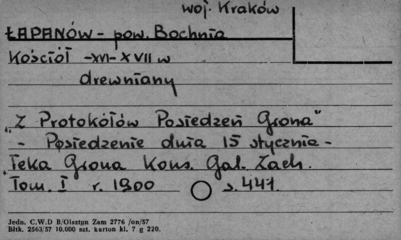 woj. Kraków
ŁAPANÓW - pow. Bochnia
Kościół -XVI-XVII w
drewniany
„Z Protokółów Posiedzeń Grona"
- Posiedzenie dnia 15 stycznia -
„Teka Grona Kons. Gal. Zach.
Tom. I r. 1900 s. 441.
Jedn. C.W.D B/Olsztyn Zam 2776 /on/57
Błtk. 2563/57 10.000 szt. karton kl. 7 g 220.